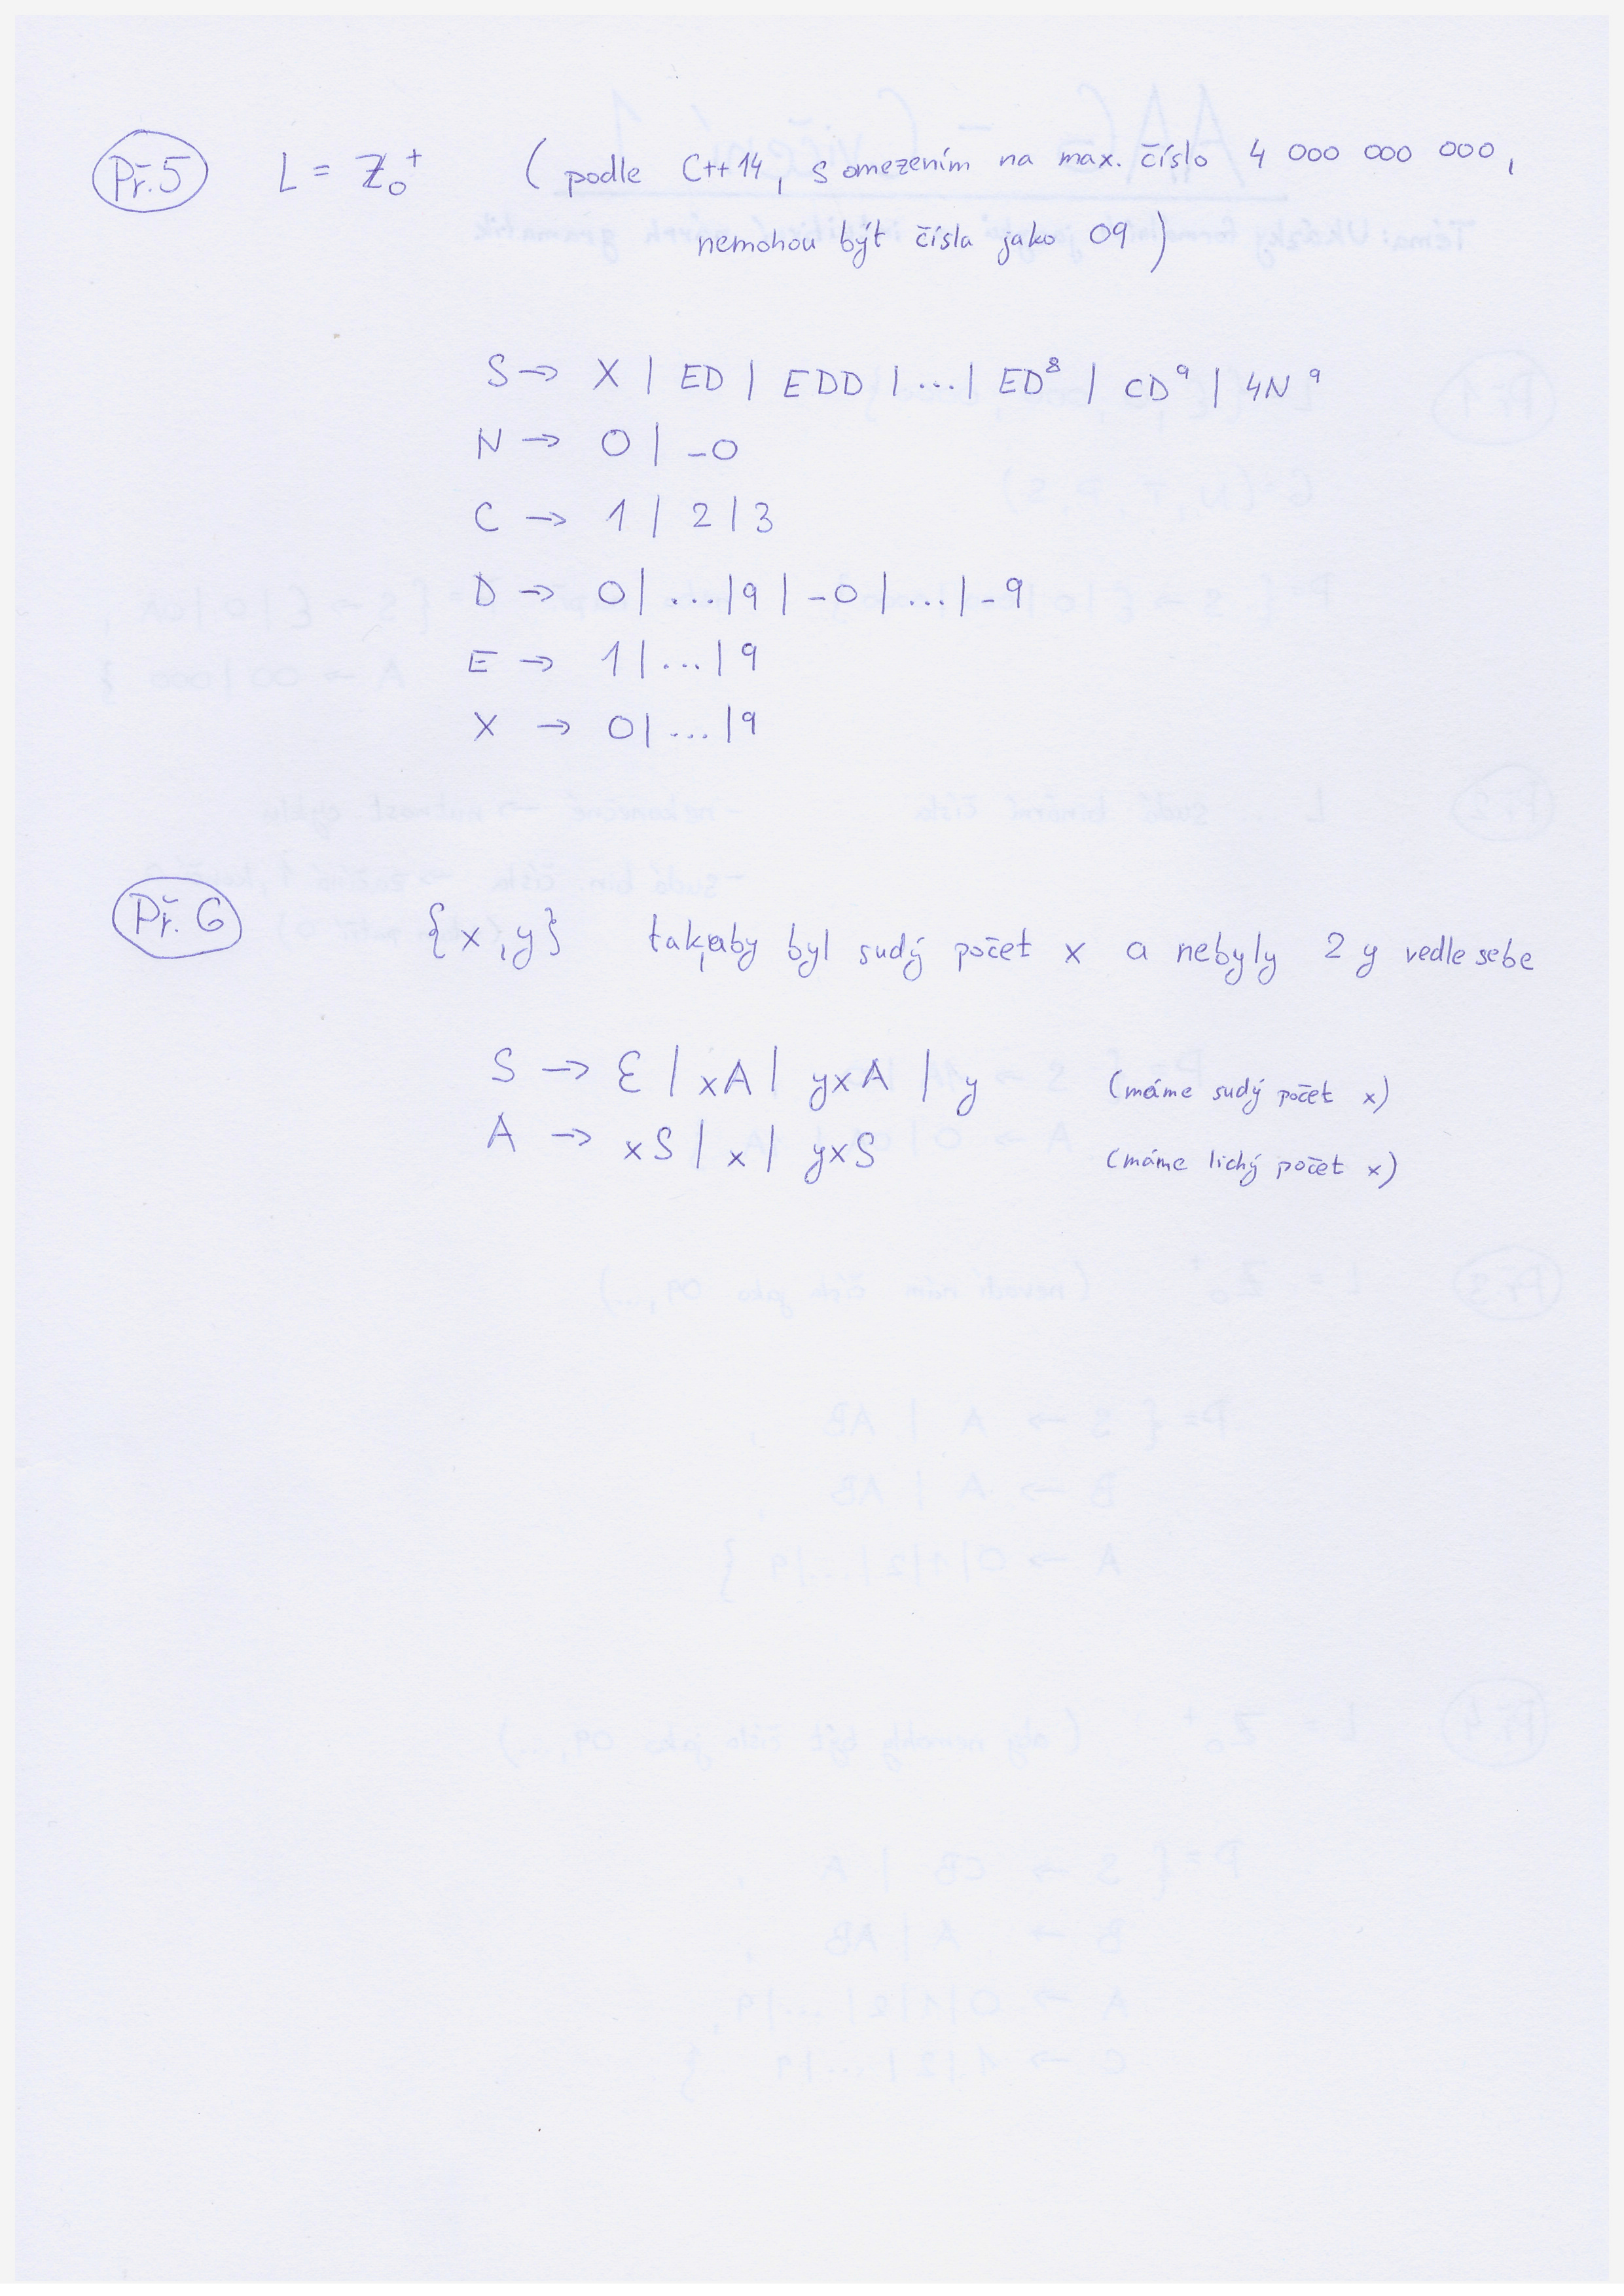 Př. 5 L = Z₀⁺ ( podle C++14, s omezením na max. číslo 4 000 000 000,
nemohou být čísla jako 09 )
S → X | ED | EDD | ... | ED⁸ | CD⁹ | 4N⁹
N → 0 | -0
C → 1 | 2 | 3
D → 0 | ... | 9 | -0 | ... | -9
E → 1 | ... | 9
X → 0 | ... | 9
Př. 6 {x,y} tak,aby byl sudý počet x a nebyly 2 y vedle sebe
S → ε | xA | yxA | y (máme sudý počet x)
A → xS | x | yxS (máme lichý počet x)